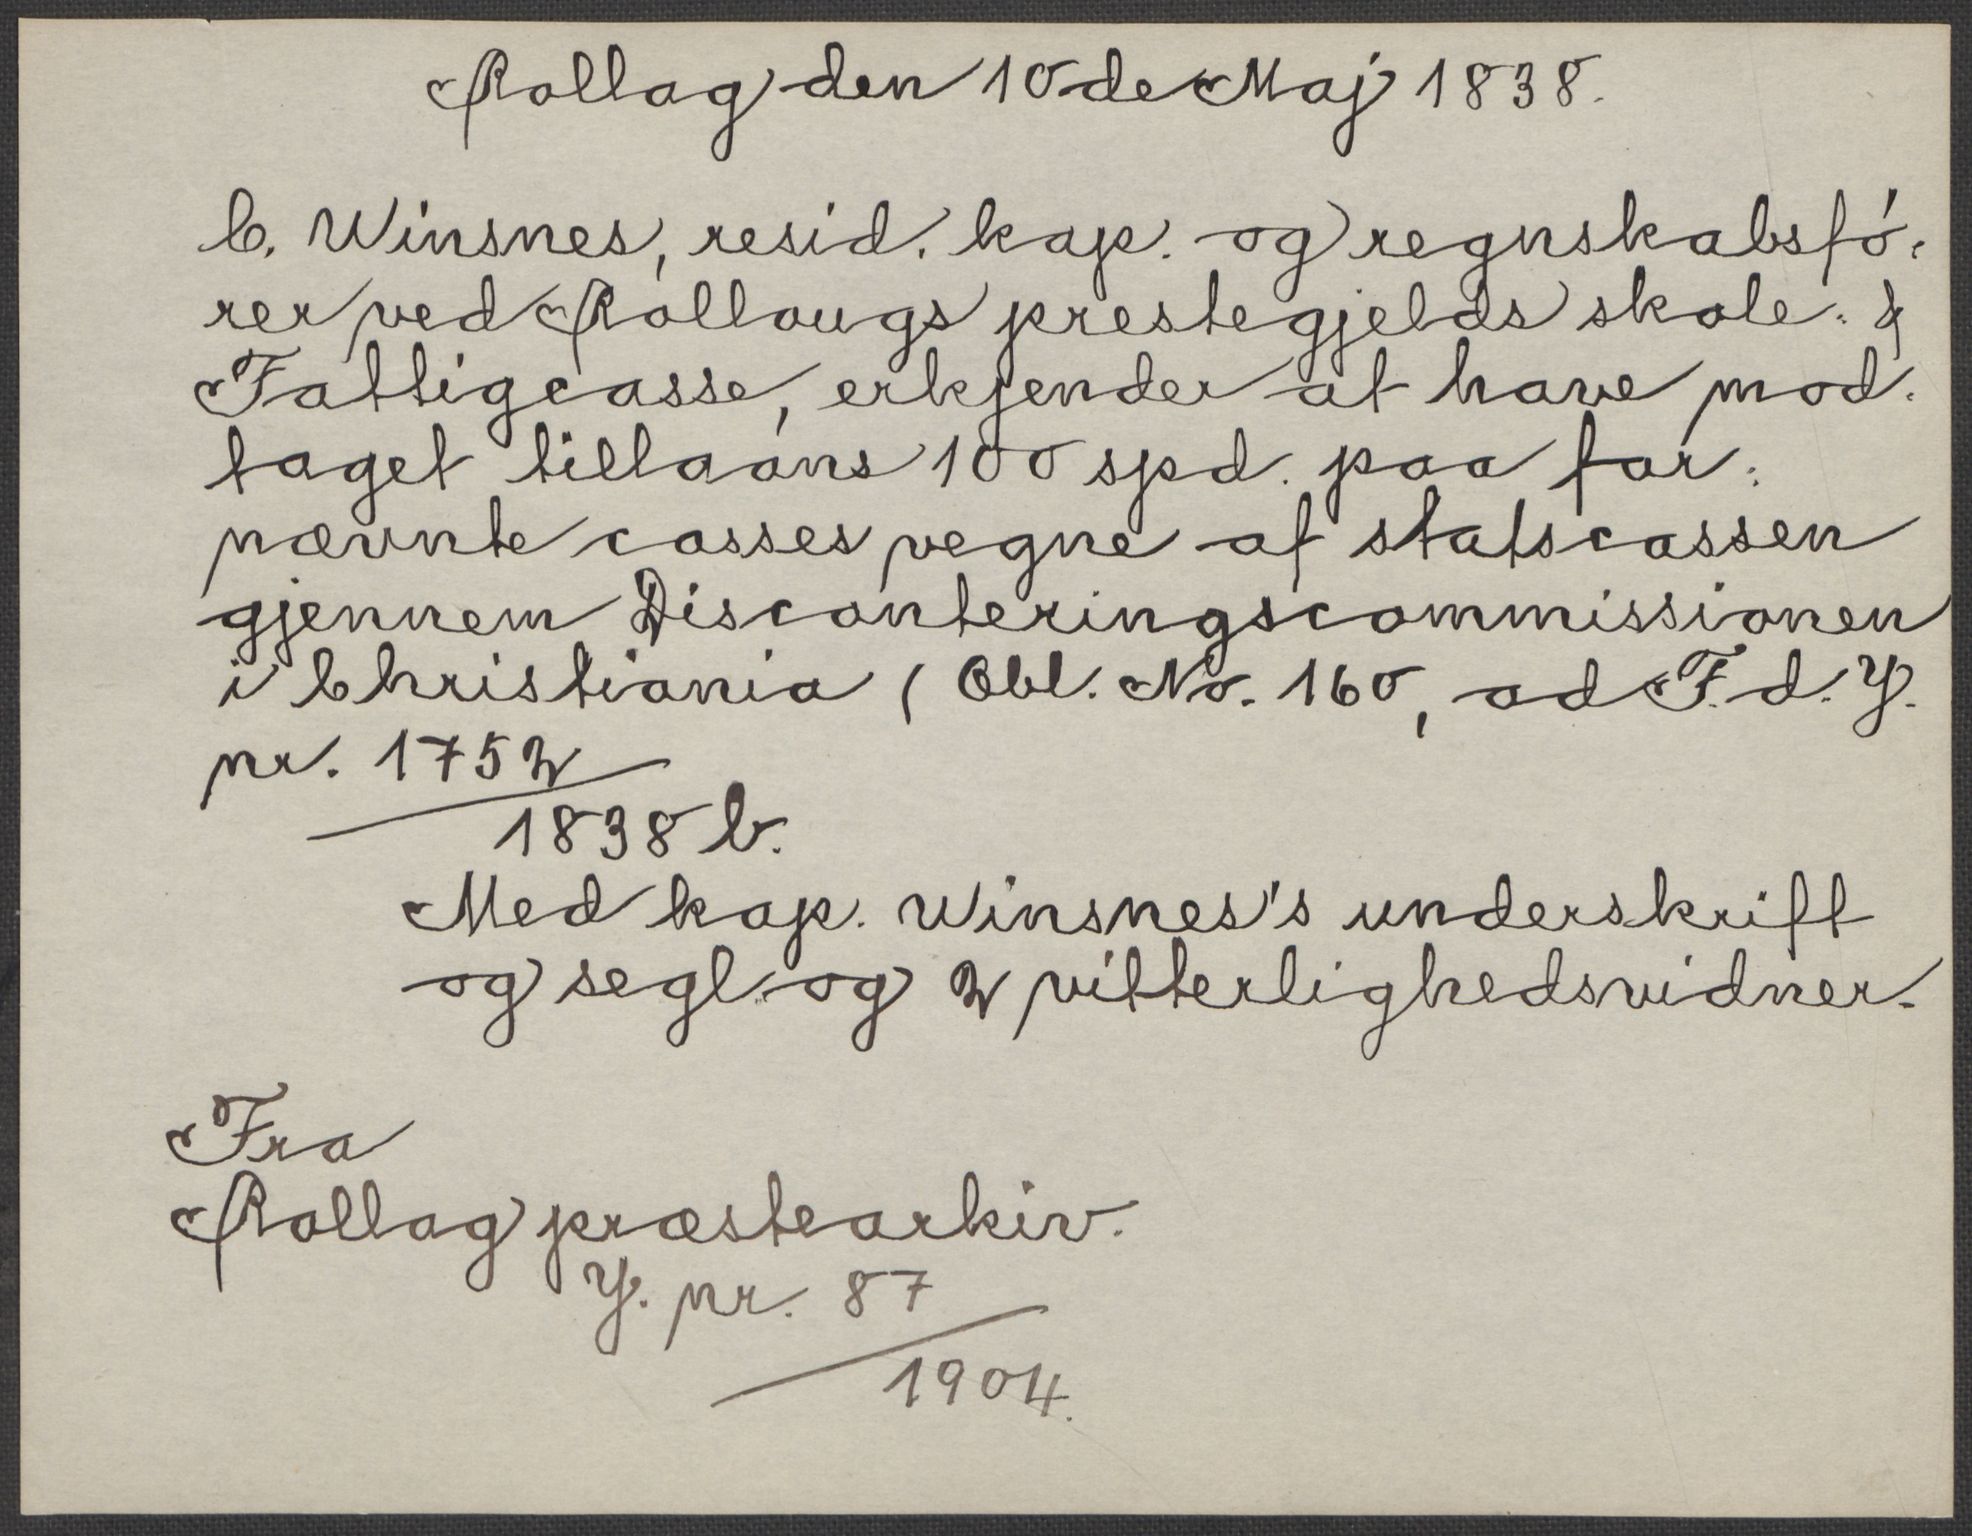 Rollag den 10de Maj 1838.
C. Winsnes, resid. kap. og regnskabsfó-
rer ved Rollougs prestegjelds skole- &
Fattigcasse, erkjender at have mod-
taget tillaans 100 spd. paa for-
nævnte casses vegne af statscassen
gjennem Disconteringscommissionen
i Christiania (Obl. No. 160, ad F. d. Y.
nr. 1752
1838 b.
Med kap. Winsnes's underskrift
og segl og 2 vitterlighedsvidner.
Fra
Rollag præstearkiv.
Y. nr. 87
1904.